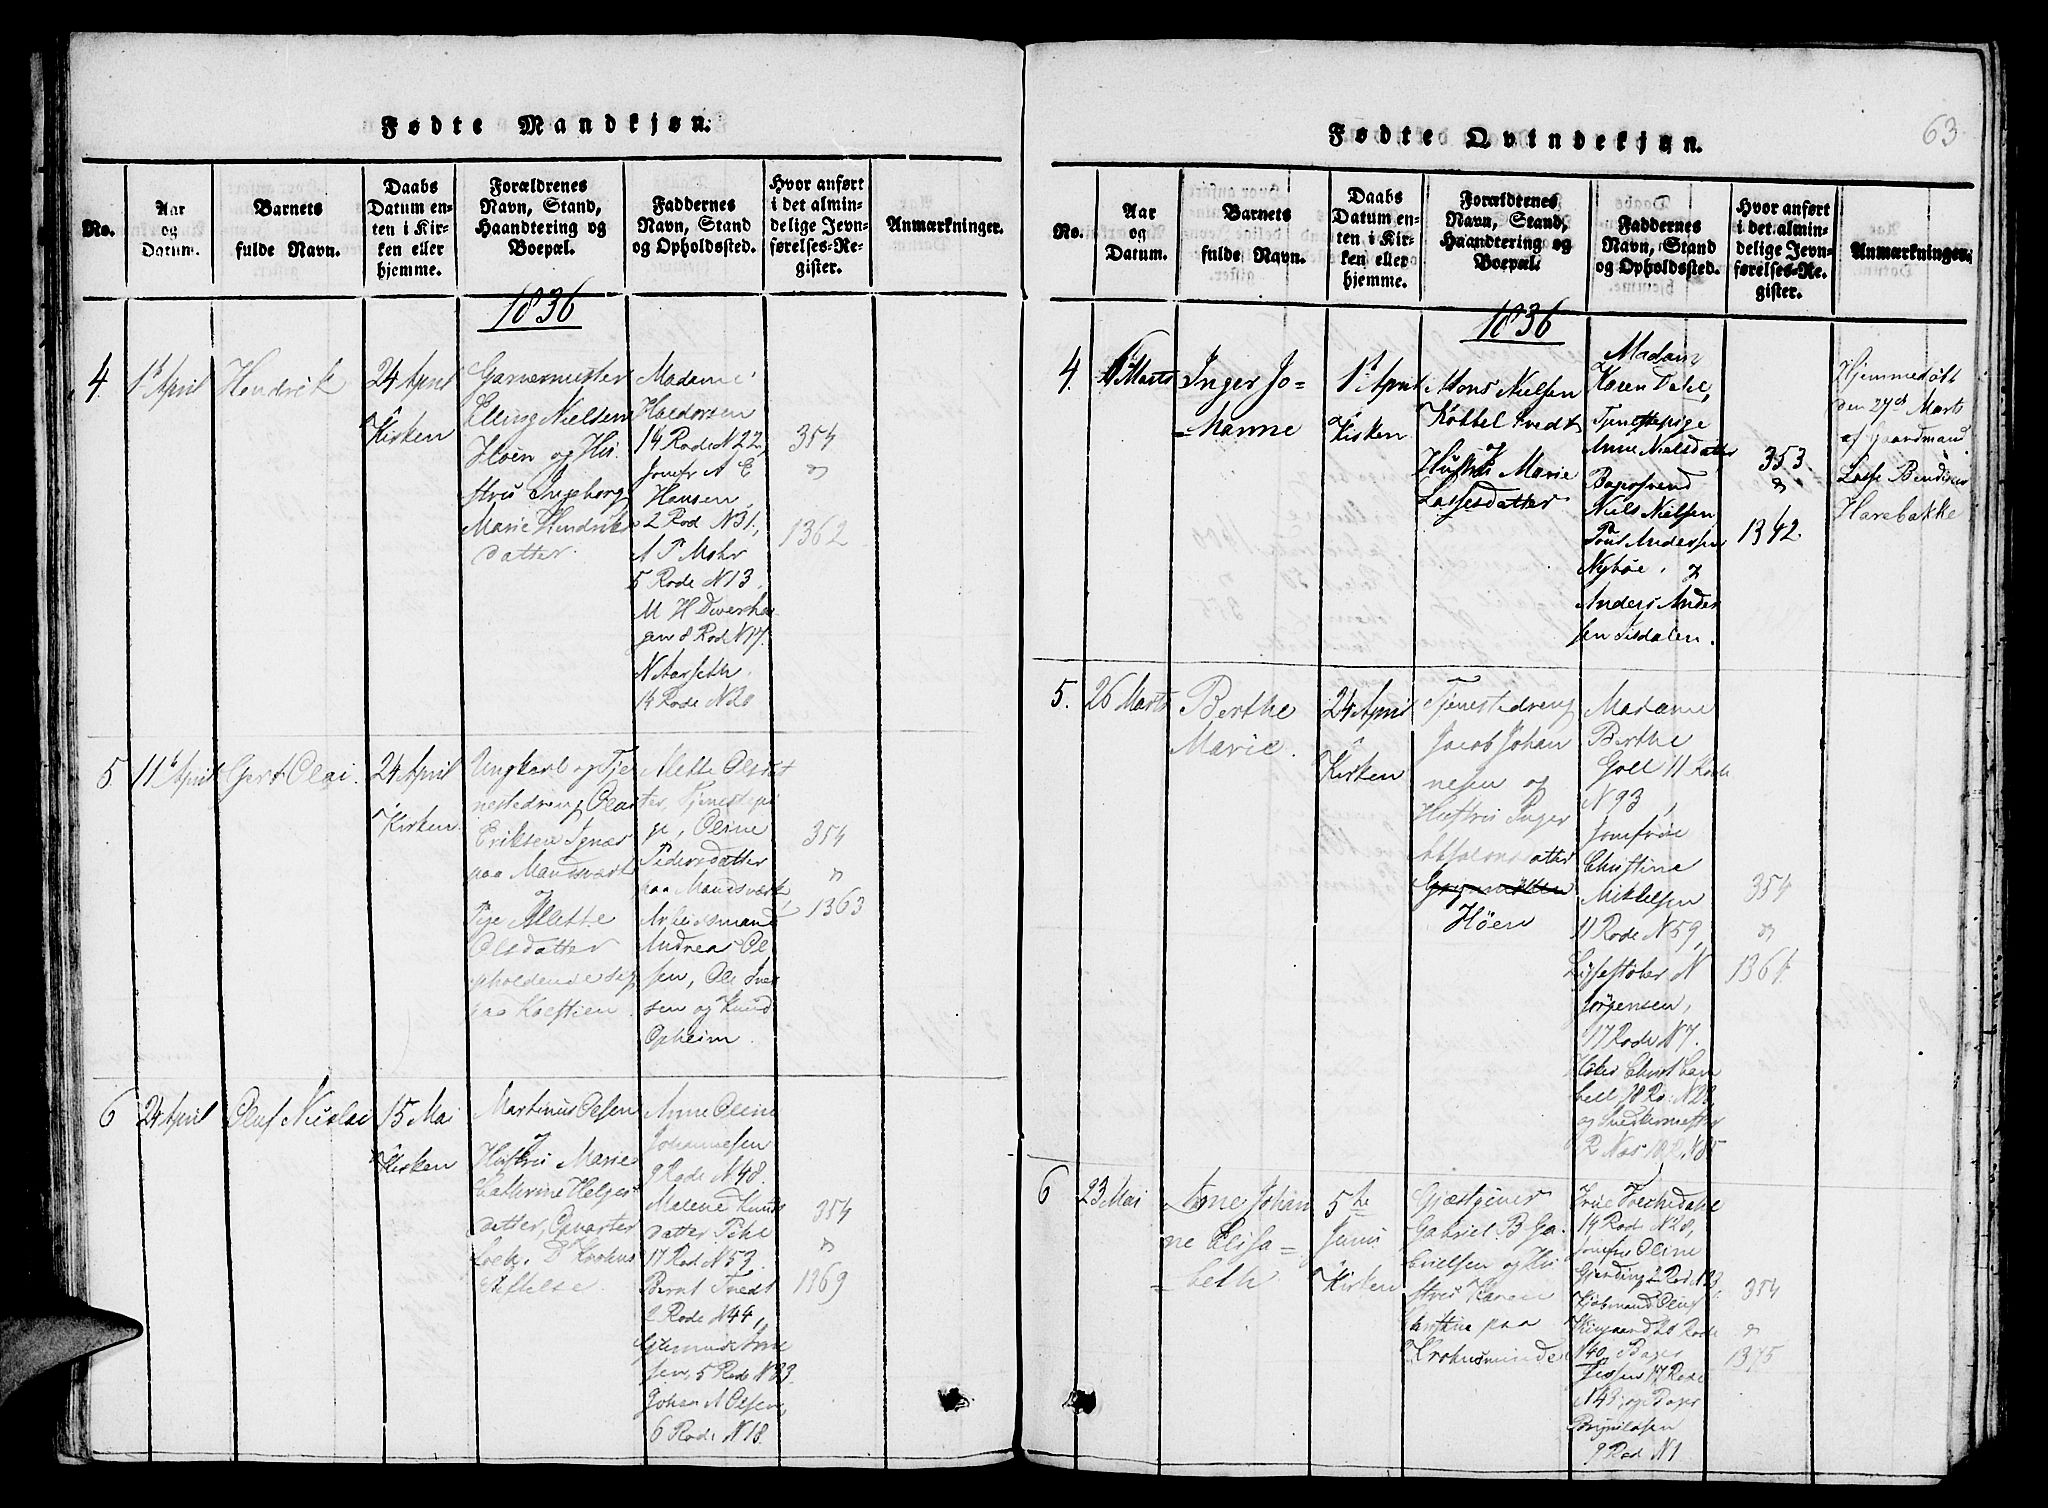 Fødte Mandkjøn.
No.
Aar
og
Datum.
Barnets
fulde Navn.
Daabs
Datum en-
ten i Kir-
ken eller
hjemme.
Forældrenes
Navn, Stand,
Haandtering og
Boepæl.
Faddernes
Navn, Stand
og Opholdssted.
Hvor anført
i det almin-
delige Jevn-
førelses-Re-
gister.
Anmærkninger.
1836
4.
1 April
Hendrik
24 April
Kirken
Garnermester
Elling Nielsen
Hoen og Hu-
stru Ingeborg
Marie Hendriks
datter.
Madame
Haldorsen
14 Rode N 22,
Jomfr A E
Hansen,
2 Rod N 31,
A P Mohr
5 Rode N 13,
M H Dverha
gen 8 Rode N 17.
N Aarseth
14 Rode N 20
354
1362
5
11 April
Gert Olai.
24 April
Kirken.
Ungkarl og Tje
nestedreng Olai
Eriksen
paa Mandsværk
Pige Mette
Olsdatter
opholdende sig
paa
Mette Olsdat
ter, Tjenestepi
ge, Oline
Pedersdatter
paa Mandsværk
Arbeidsmand
Andrea Ol
sen, Ole Iver
sen og Knud
Opheim.
354
1363
6
24 April
Oluf Nicolai
15 Mai
Kirken
Martinus Olsen
og
Hustru Marie
Cathrine Helges
datter,
Anne Oline
Johannesen
9 Rode N 48.
Malene Knuds
datter Pihe
17 Rod N 53.
Bernt Tvedt
2 Rode N 44,
sen, 5 Rod N 33.
Johan A Olsen,
6 Rode N 18.
354
1369
Fødte Qvindekjøn.
63
No.
Aar
og
Datum.
Barnets
fulde Navn.
Daabs
Datum en-
ten i Kir-
ken eller
hjemme.
Forældrenes
Navn, Stand,
Haandtering og
Boepæl.
Faddernes
Navn, Stand
og Opholdssted.
Hvor anført
i det almin-
delige Jevn-
førelses-Re-
gister.
Anmærkninger.
1836
4.
Marts
Inger Jo-
hanne
1 April
Kirken
Mons Nielsen
Hustru Marie
Lassesdatter
Madam
Karen Dahl,
Tjenestepige
Anne Nielsdatter
Bagersvend
Niels Nielsen
Poul Andersen
Nybøe, og
Anders Ander
sen Isdalen.
353.
1342.
Hjemmedøbt
den 27d Marts
af Gaardmand
Lasse Bendixen
Harebakke
5.
26 Marts
Berthe
Marie.
24 April
Kirken
Tjenestedreng
Jacob Johan
nesen og
Hustru Inger
Absalonsdatter
Høen
Madame
Berthe
Gall 11 Rode
N 93,
Jomfrue
Christine
Mikkelsen
11 Rode N 59,
N
Jørgensen,
17 Rode N 7.
354
1364.
6
23 Mai
Anne Johan
ne Elisa-
beth
5te
Juni
Kirken
Gjæstgiver
Gabriel B Ga
brielsen og Hu
stru Karen
Christine paa
Krohnsminde
14 Rod N 28,
Jomfru Oline
Kjøbmand Oluf
N 40, Bager
Jessen 17 Rode
N 43, og Bager
Brynildsen
9 Rod N 1
354
1375